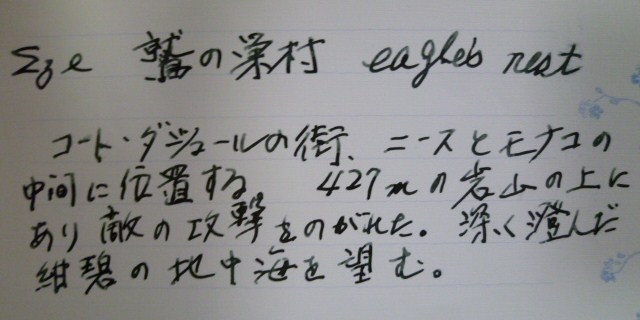 Eze 鷲の巣村 eagle's nest
コート・ダジュールの街、ニースとモナコの
中間に位置する。 427mの岩山の上に
あり敵の攻撃をのがれた。深く澄んだ
紺碧の地中海を望む。